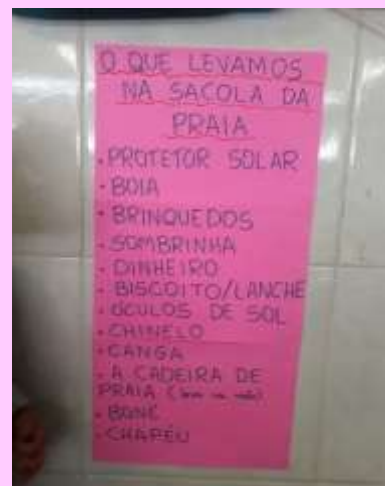 O QUE LEVAMOS
NA SACOLA DA
PRAIA
• PROTETOR SOLAR
• BOIA
• BRINQUEDOS
• SOMBRINHA
• DINHEIRO
• BISCOITO/LANCHE
• ÓCULOS DE SOL
• CHINELO
• CANGA
• A CADEIRA DE
PRAIA (leva na mão)
• BONÉ
• CHAPÉU